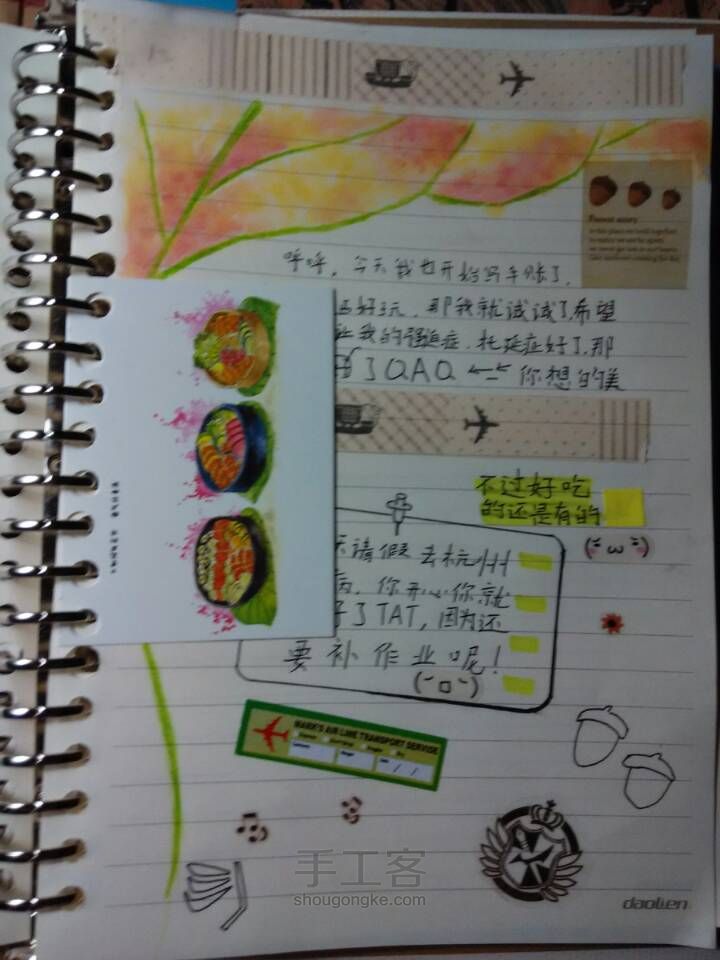 Forest story
呼呼，今天我也开始写手账了，
还好玩，那我就试试了，希望
让我的强迫症，拖延症好了，那
了QAQ ←_← 你想的美
不过好吃
的还是有的
(ω)
天请假去杭州
病，你开心你就
好了TAT，因为还
要补作业呢！
MARK'S AIR LINE TRANSPORT SERVISE
手工客
shougongke.com
daolien